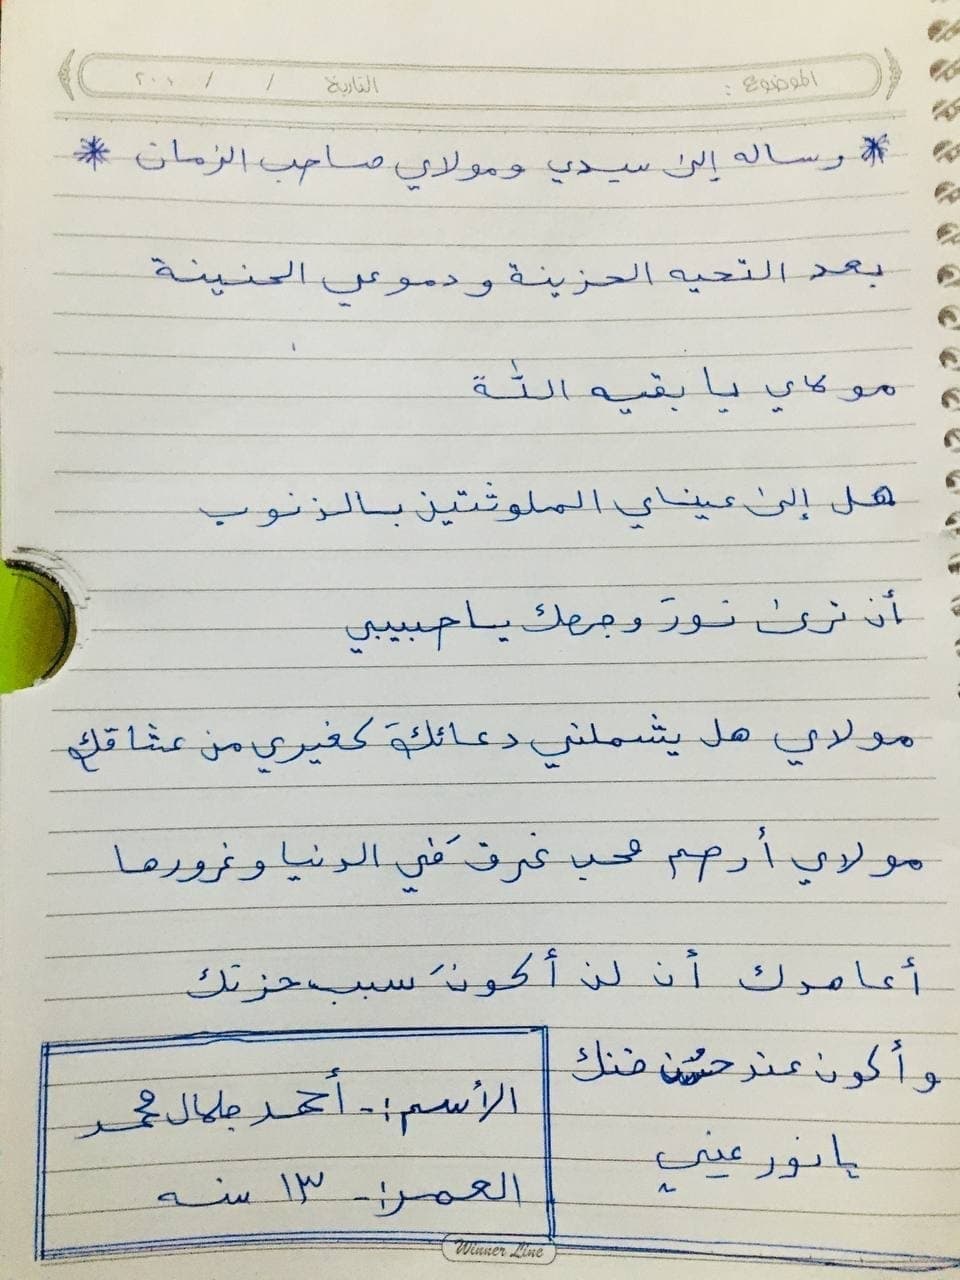 الموضوع : التاريخ / / ٢٠٠
* رساله إلى سيدي ومولاي صاحب الزمان *
بعد التحيه الحزينة ودموعي الحنينة
مولاي يا بقيه اللة
هل إلى عيناي الملوثتين بالذنوب
أن ترى نورَ وجهك يا حبيبي
مولاي هل يشملني دعائك كغيري من عشاقك
مولاي أرحم محب غرقَ في الدنيا وغرورها
أعاهدك أن لن أكونَ سبب حزنك
وأكون عند حُسن ضنك
يا نور عيني
الأسم :- أحمد جمال محمد
العمر :- ١٣ سنه
Winner Line